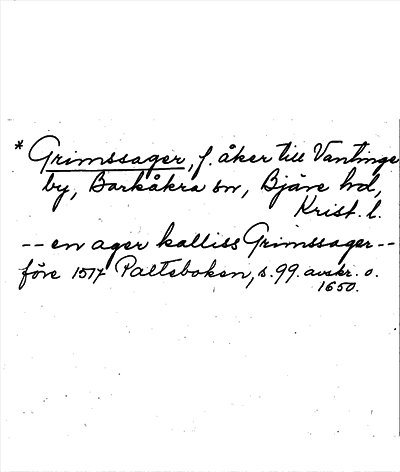 * Grimssager, f. åker till Vantinge
by, Barkåkra sn, Bjäre hd,
Krist. l.
-- en ager kalliss Grimssager --
före 1517 Palteboken, s. 99. avskr. o.
1650.